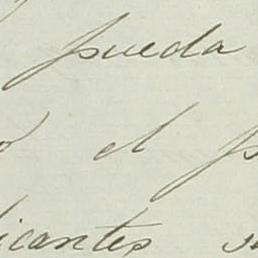 pueda
el
icantes